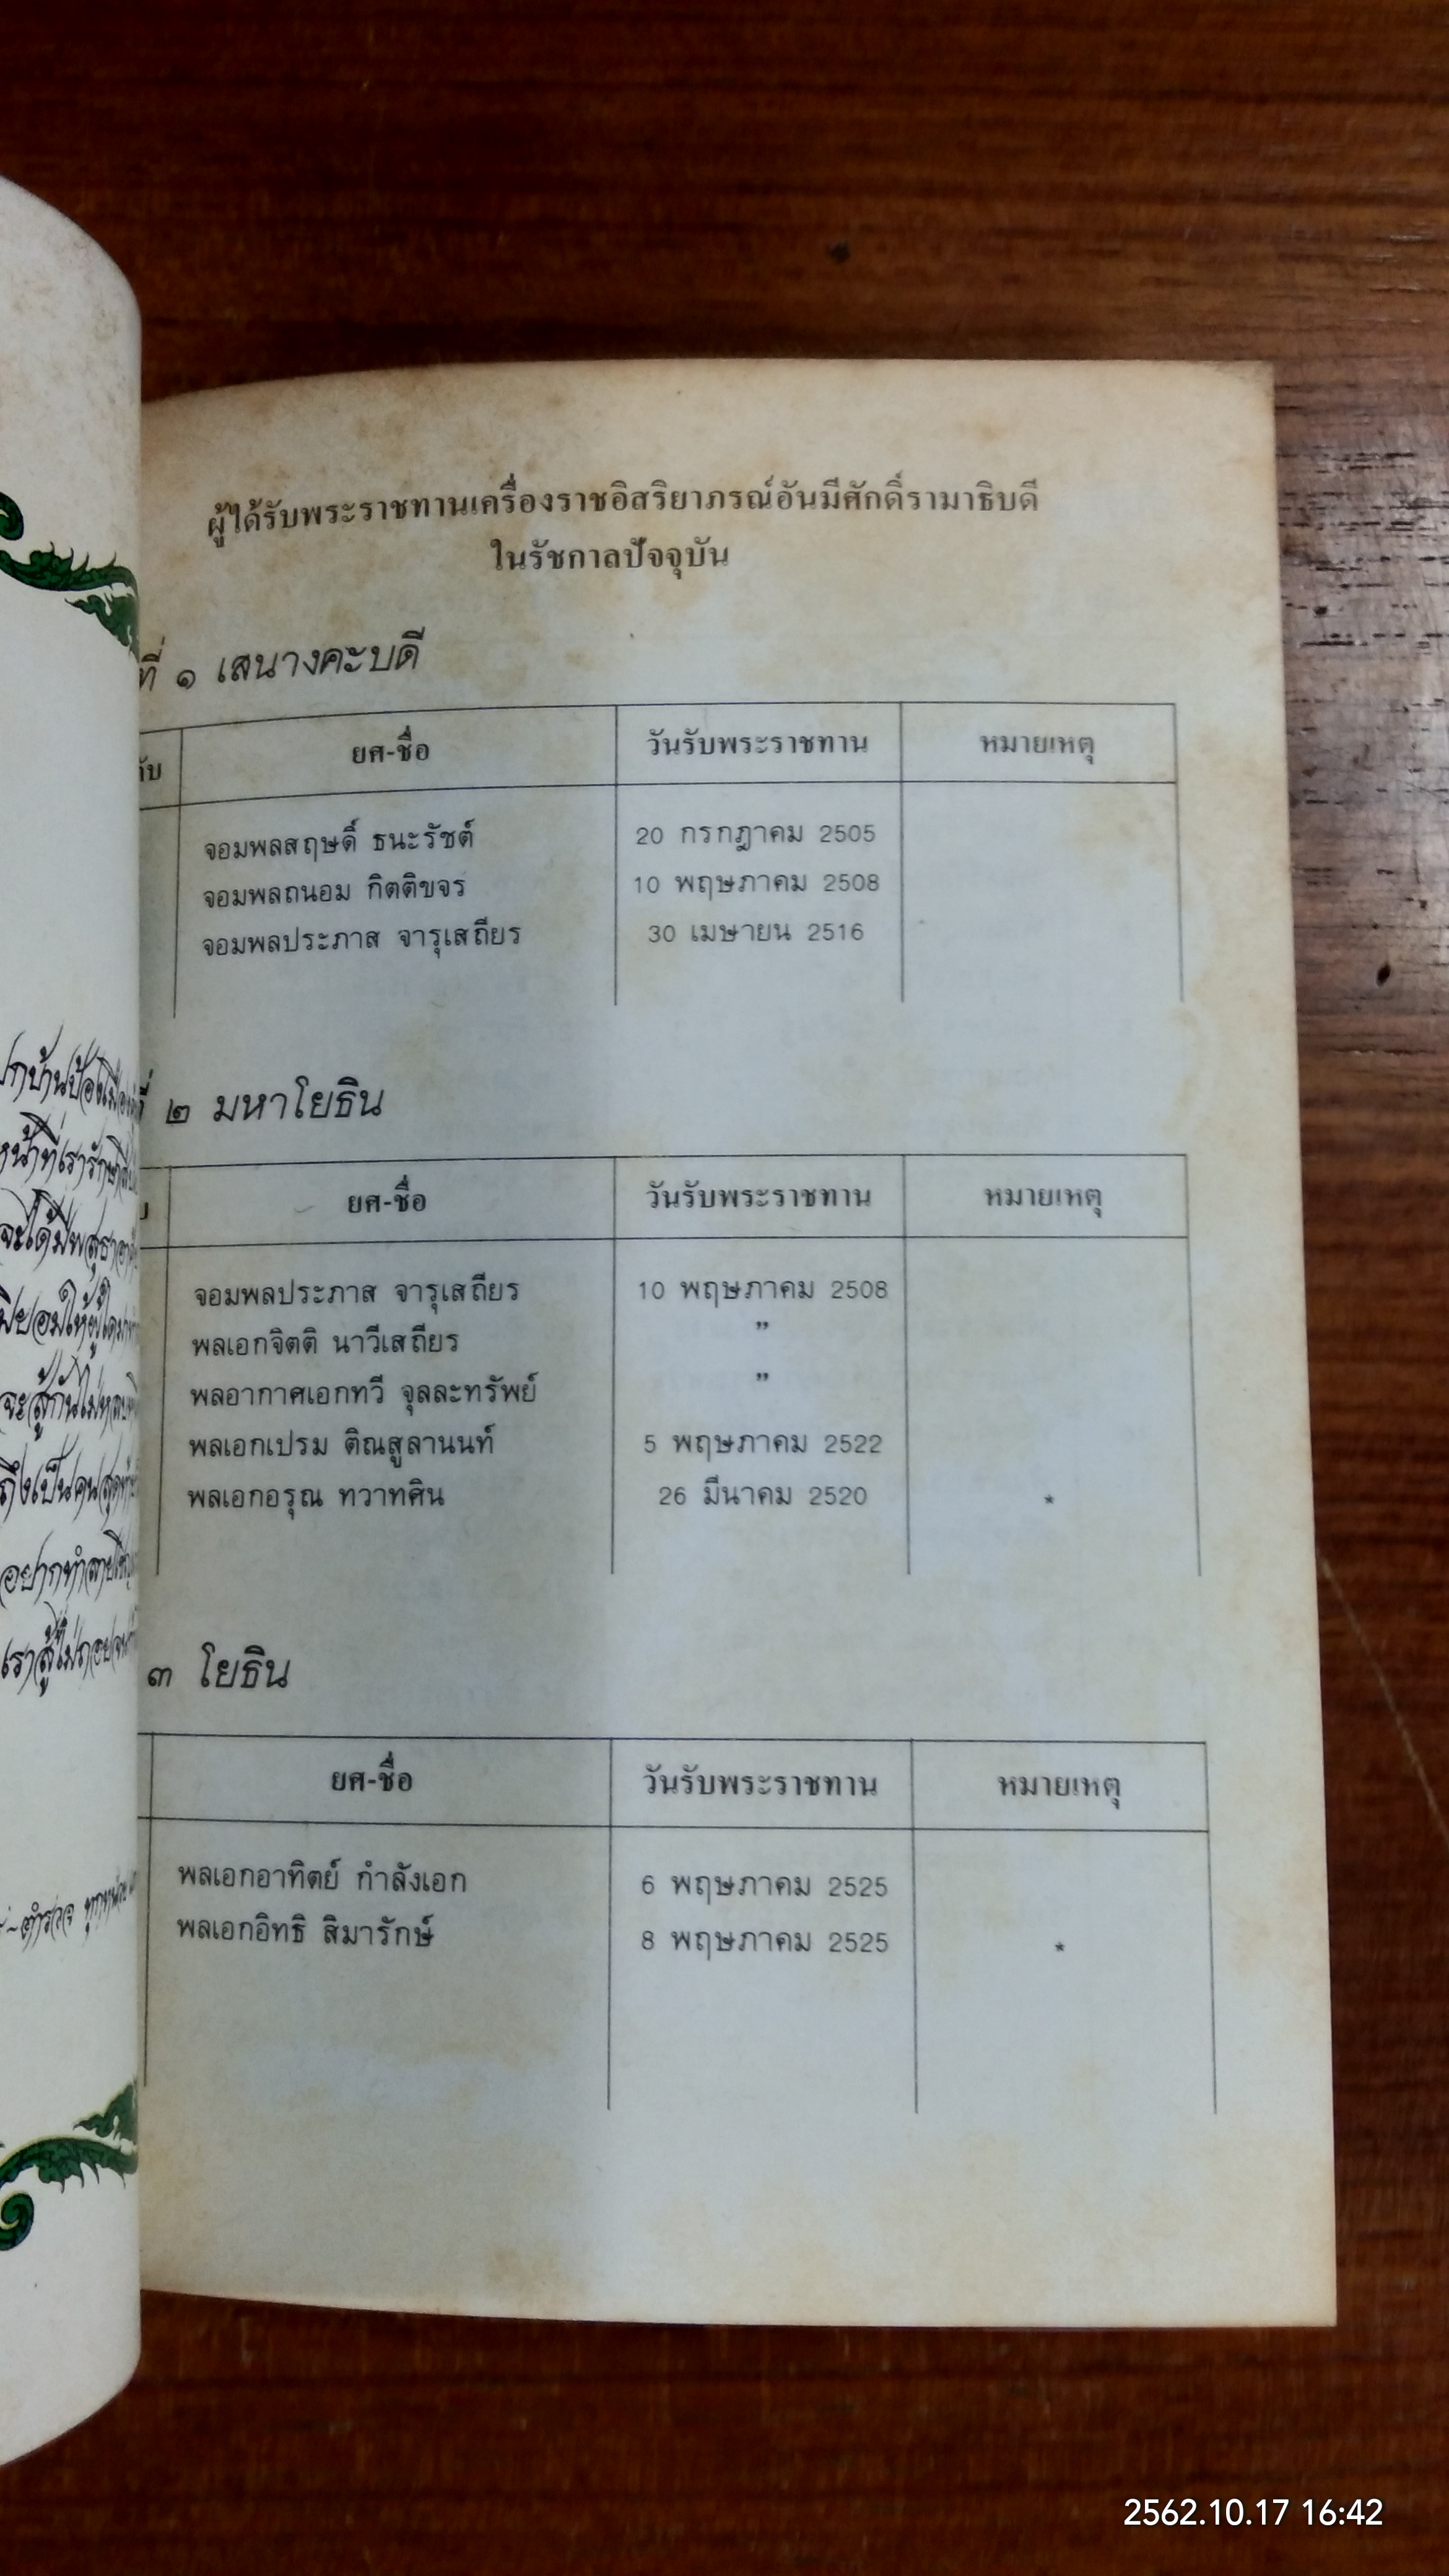 ผู้ได้รับพระราชทานเครื่องราชอิสริยาภรณ์อันมีศักดิ์รามาธิบดี
ในรัชกาลปัจจุบัน
ที่ ๑ เสนางคะบดี
ยศ-ชื่อ วันรับพระราชทาน หมายเหตุ
จอมพลสฤษดิ์ ธนะรัชต์ 20 กรกฎาคม 2505
จอมพลถนอม กิตติขจร 10 พฤษภาคม 2508
จอมพลประภาส จารุเสถียร 30 เมษายน 2516
ที่ ๒ มหาโยธิน
ยศ-ชื่อ วันรับพระราชทาน หมายเหตุ
จอมพลประภาส จารุเสถียร 10 พฤษภาคม 2508
พลเอกจิตติ นาวีเสถียร ”
พลอากาศเอกทวี จุลละทรัพย์ ”
พลเอกเปรม ติณสูลานนท์ 5 พฤษภาคม 2522
พลเอกอรุณ ทวาทศิน 26 มีนาคม 2520 *
๓ โยธิน
ยศ-ชื่อ วันรับพระราชทาน หมายเหตุ
พลเอกอาทิตย์ กำลังเอก 6 พฤษภาคม 2525
พลเอกอิทธิ สิมารักษ์ 8 พฤษภาคม 2525 *
2562.10.17 16:42